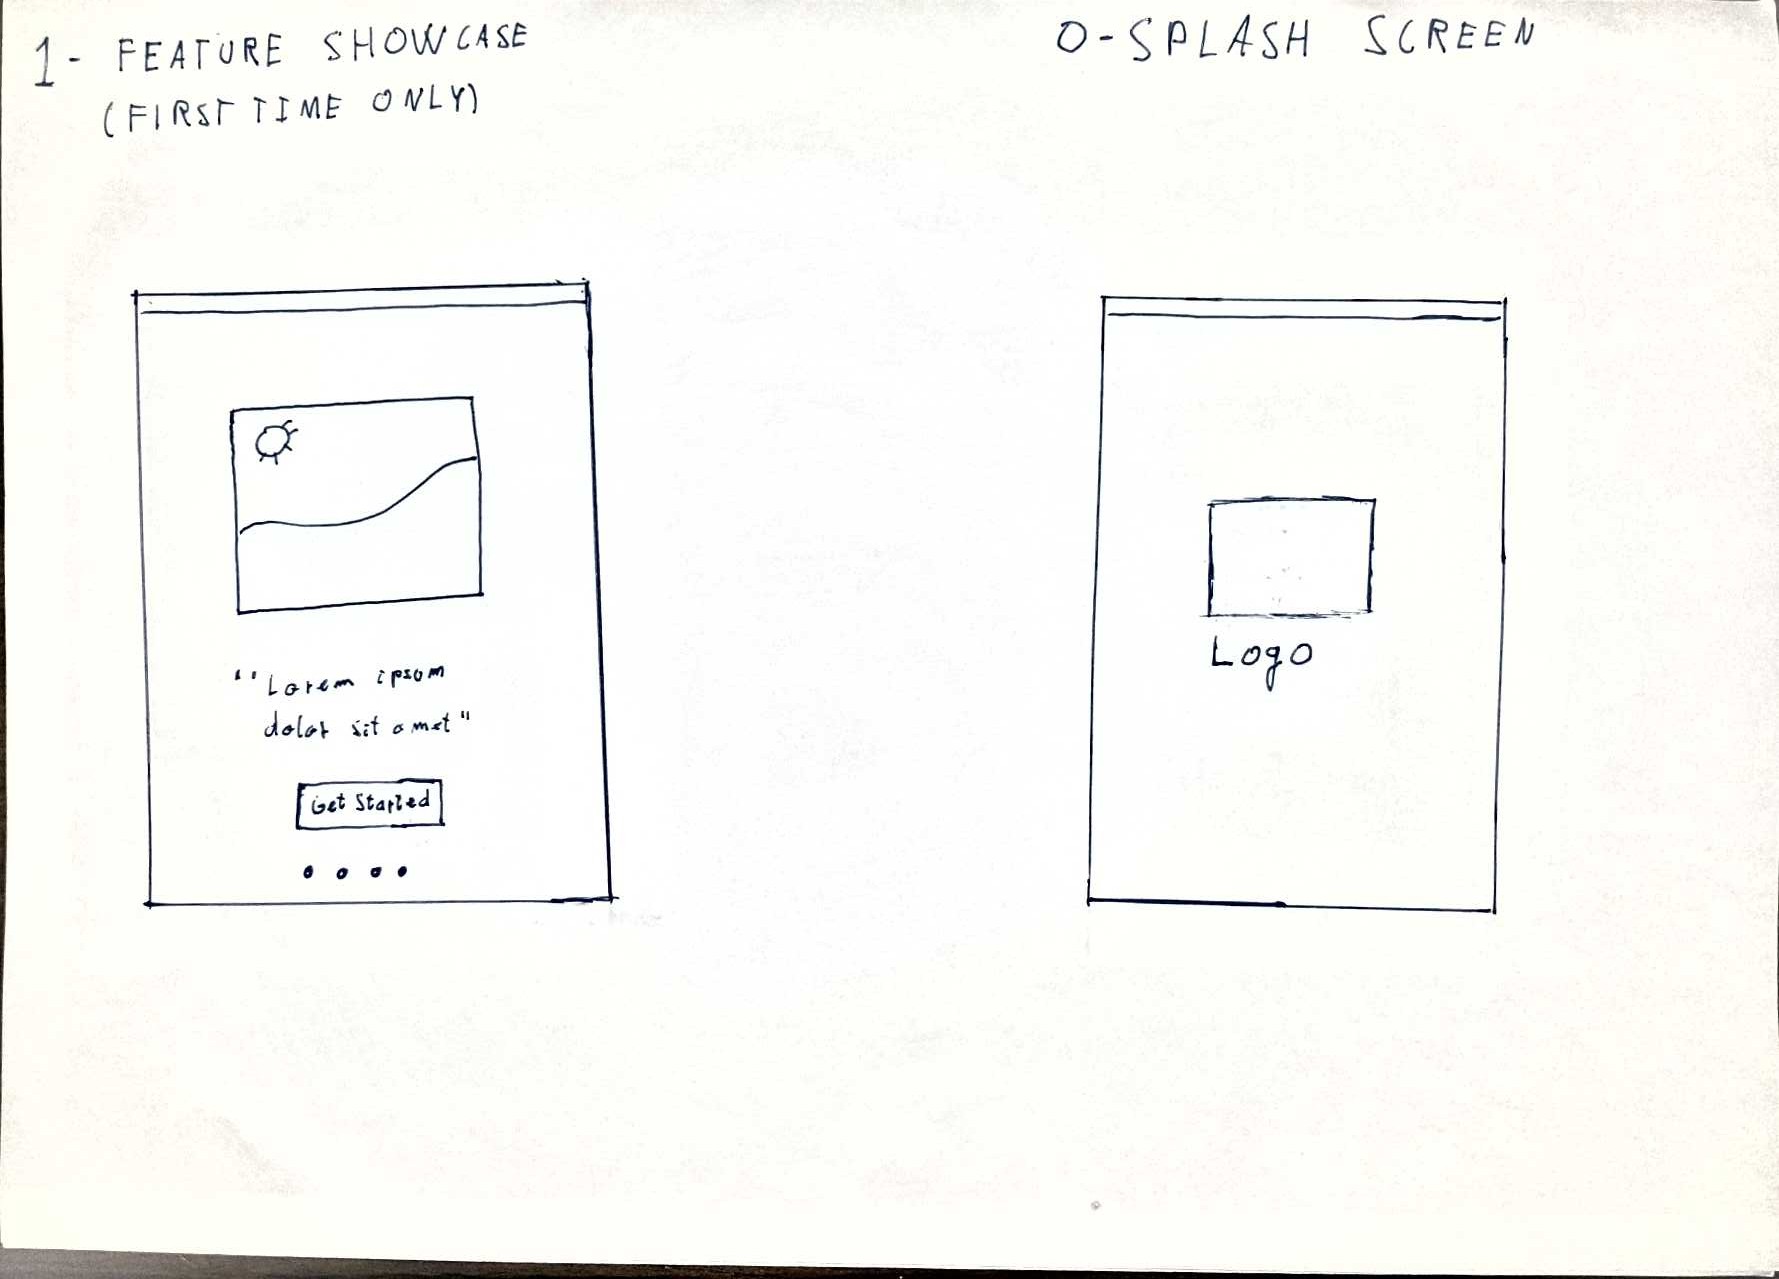 1- FEATURE SHOWCASE
(FIRST TIME ONLY)
"Lorem ipsom
dolor sit amet"
Get Started
0-SPLASH SCREEN
Logo